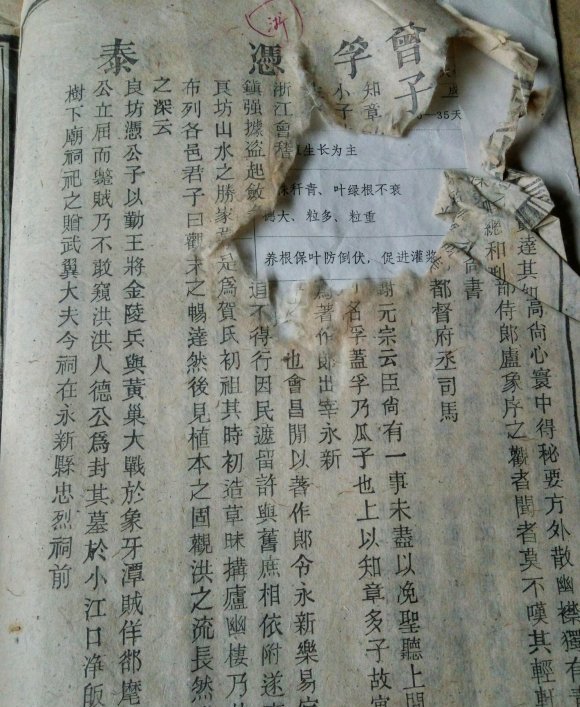 浙
曾子
孚
憑
泰
達其如高尚心寰中得秘要方外散幽襟獨有
總和刑部侍郎盧象序之觀者聞者莫不嘆其輕軒
尚書
都督府丞司馬
知章
謝元宗云臣尚有一事未盡以免聖聽上問
小子
名孚蓋孚乃瓜子也上以知章多子故
為著作郎出宰永新
浙江會稽
也會昌開以著作郎令永新樂易
鎮强據盜起
追不得行因民遮留許與舊庶相依附遂
坊山水之勝
是為賀氏初祖其時初造草昧搆廬幽棲乃
布列各邑君子曰觀末之暢達然後見植本之固觀洪之流長然
之深云
良坊憑公子以勤王將金陵兵與黃巢大戰於象牙潭賊佯郤麾
公立屈而鏖賊乃不敢窺洪洪人德公為封其墓於小江口淨飯
樹下廟祠祀之贈武翼大夫今祠在永新縣忠烈祠前
成
—35天
生长为主
秆青、叶绿根不衰
大、粒多、粒重
养根保叶防倒伏，促进灌浆